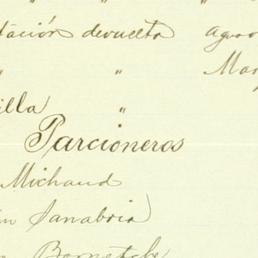 " " "
tación devuelta Agos
" " May
illa "
Parcioneros
Michaud
in Sanabria
n Bernetche